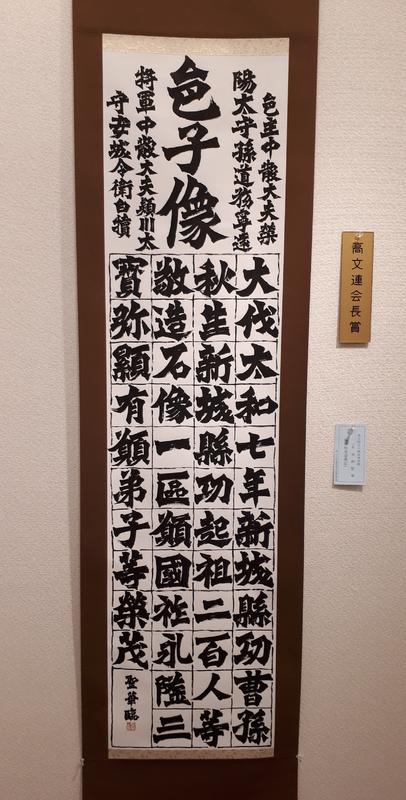 邑子像
邑主中散大夫榮
陽太守孫道務寧遠
將軍中散大夫頴川太
守安城令衛白犢
大代太和七年新城縣功曹孫
秋生新城縣功起祖二百人等
敬造石像一區願國祚永隆三
寳弥顯有願弟子等榮茂
聖華臨
高文連会長賞